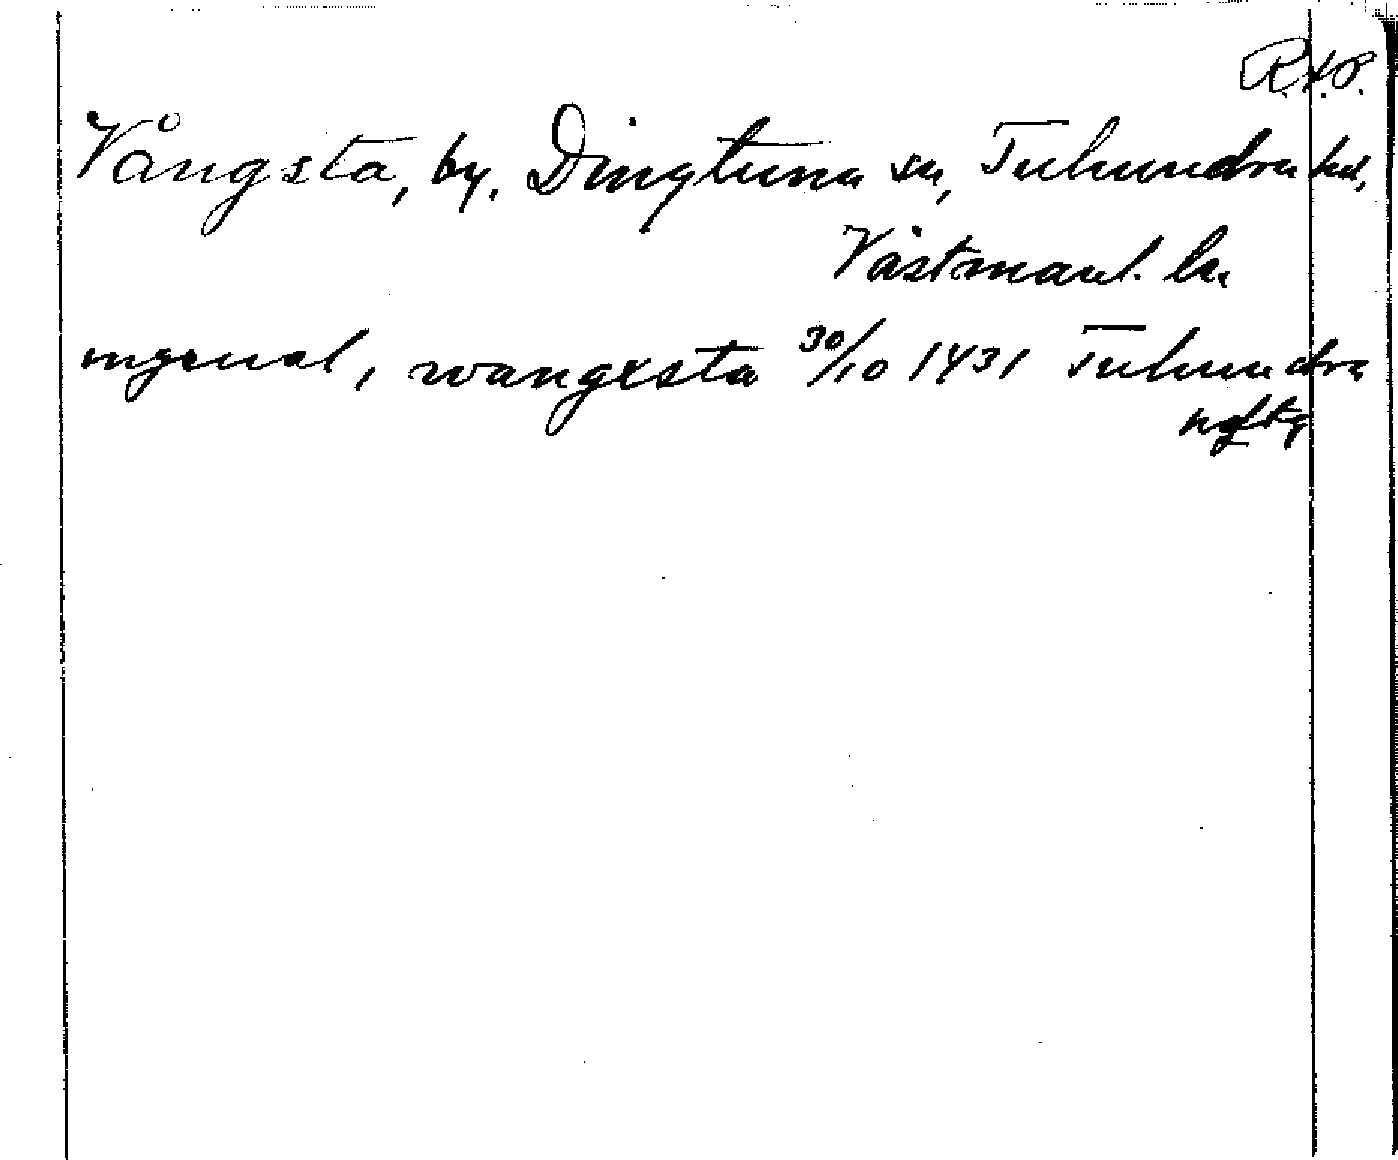 R.A.P.
Vångsta, by. Dingtuna sn, Tuhundra hd,
Västmanl. ln.
ingeual, wangxsta 30/10 1431 Tuhundra